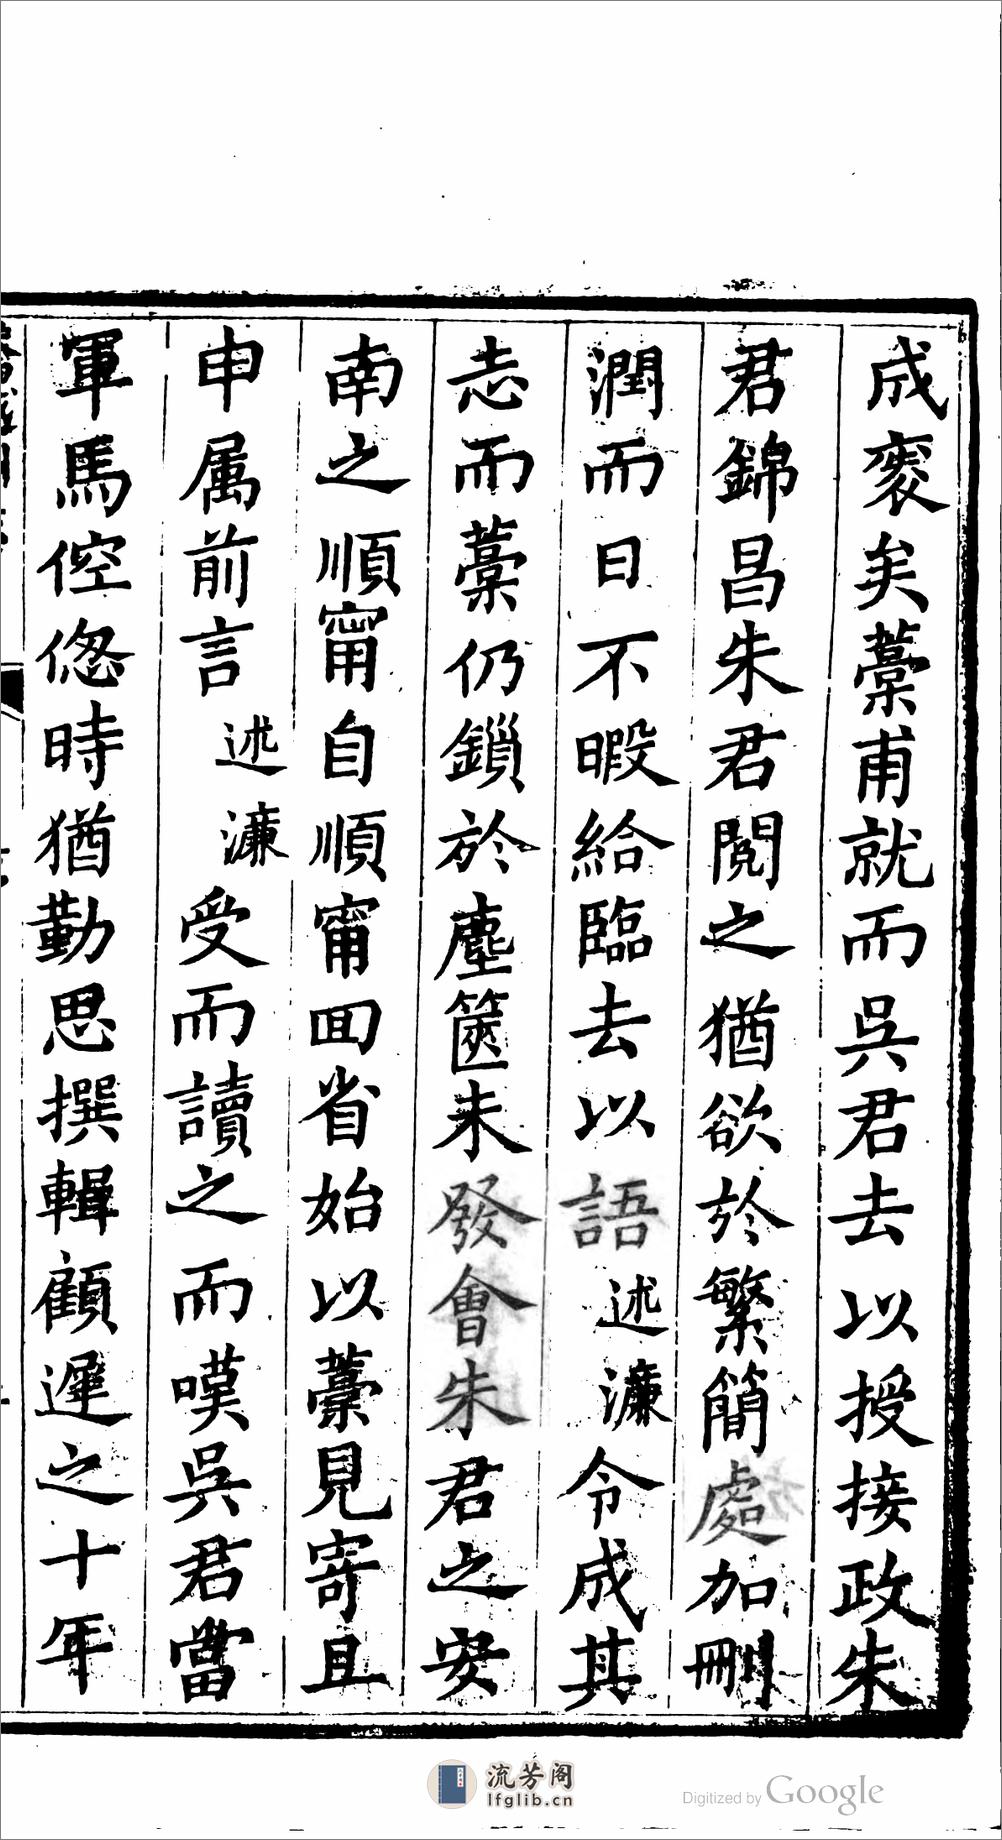 成褎矣藁甫就而吳君去以授接政朱
君錦昌朱君閱之猶欲於繁簡處加刪
潤而日不暇給臨去以語述濂令成其
志而藁仍鎖於塵篋未發會朱君之安
南之順甯自順甯回省始以藁見寄且
申属前言述濂受而讀之而嘆吳君當
軍馬倥傯時猶勤思撰輯顧遲之十年
流芳阁
lfglib.cn
Digitized by Google